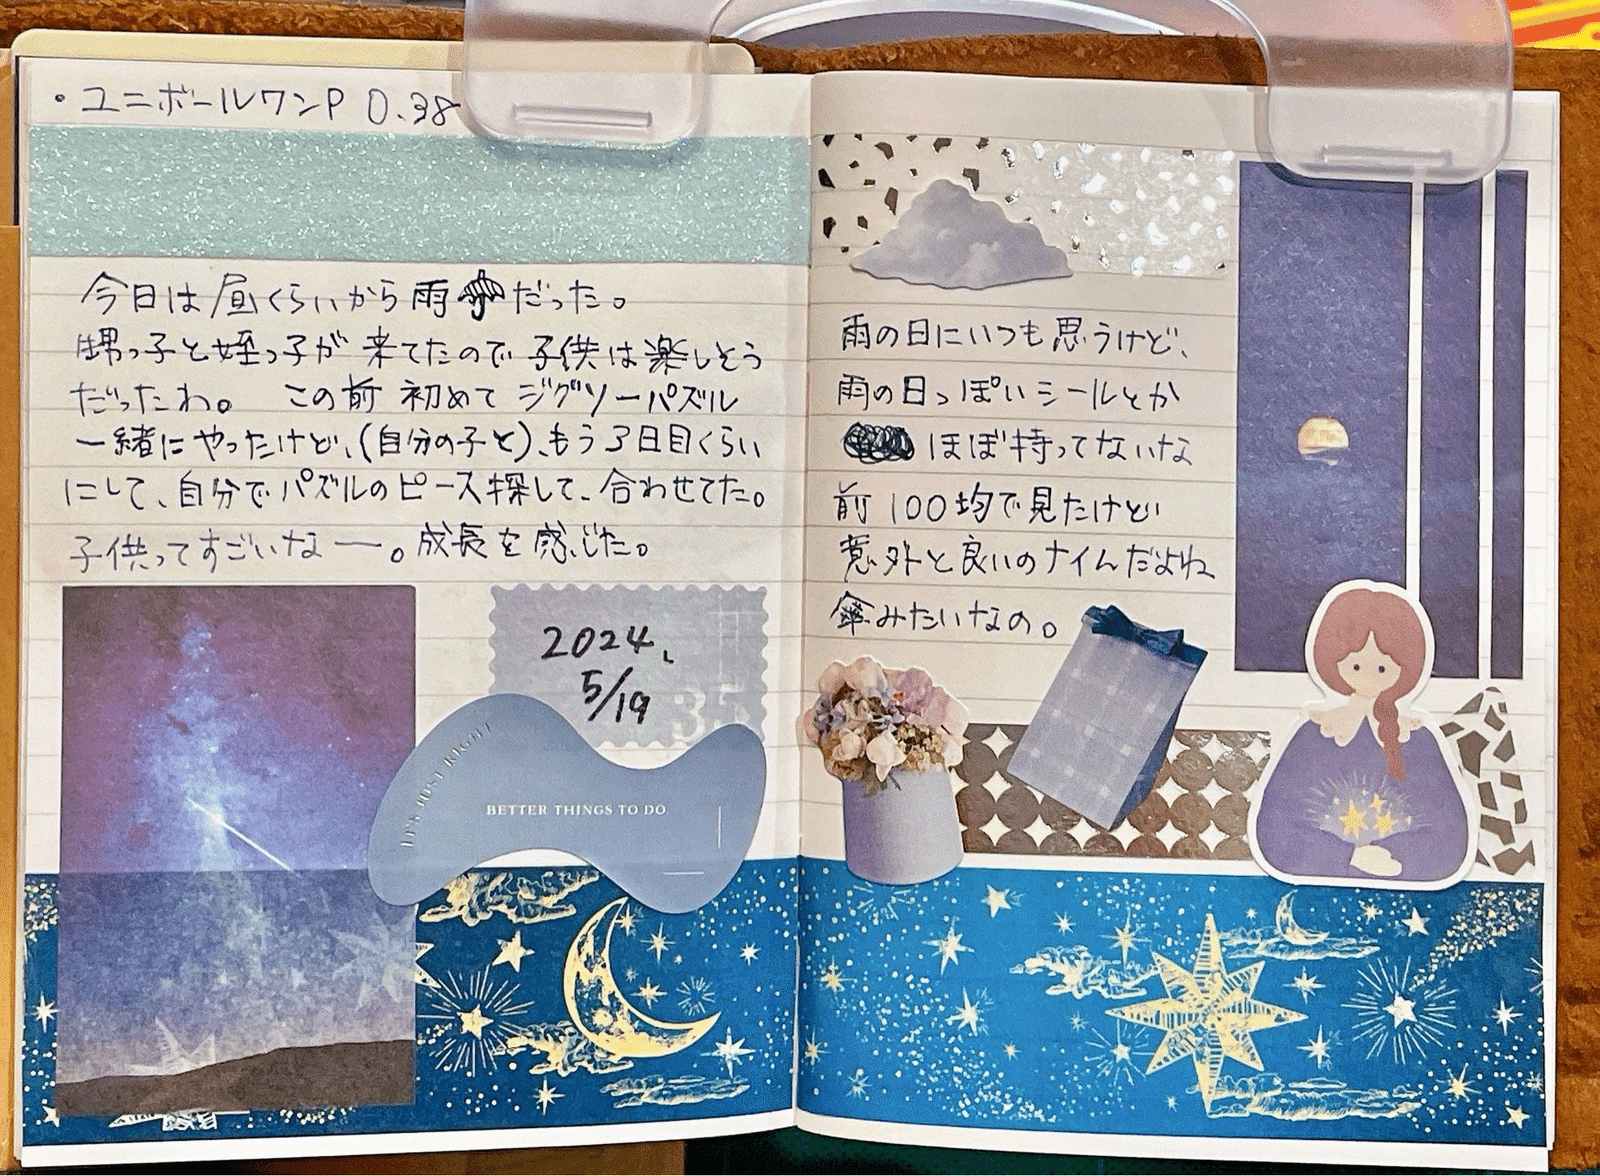 ・ユニボールワンP 0.38
今日は昼くらいから雨だった。
甥っ子と姪っ子が来てたので子供は楽しそう
だったわ。 この前 初めて ジグソーパズル
一緒にやったけど、(自分の子と)、もう3日目くらい
にして、自分でパズルのピース探して、合わせてた。
子供ってすごいなー。成長を感じた。
2024.
5/19
35
IT'S JUST RIGHT
BETTER THINGS TO DO
雨の日にいつも思うけど、
雨の日っぽいシールとか
ほぼ持ってないな
前100均で見たけど
意外と良いのナイんだよね
傘みたいなの。